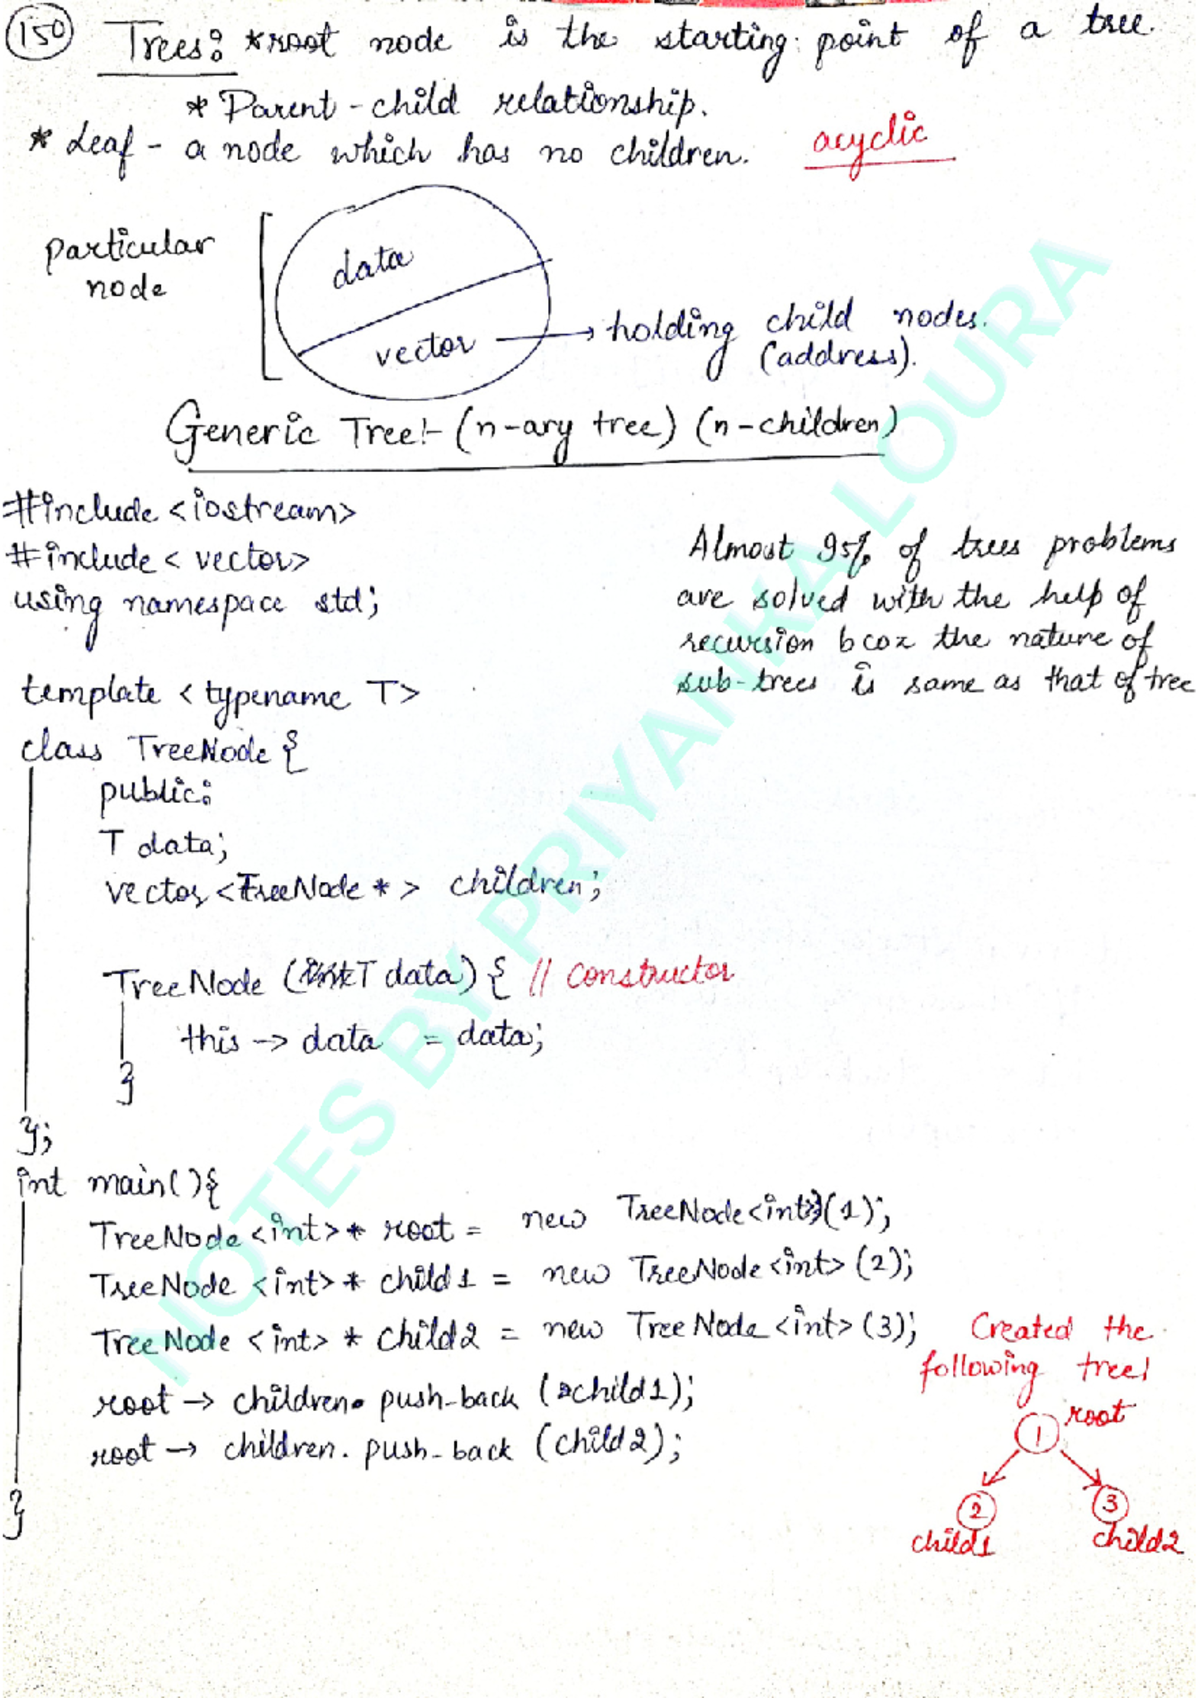 150
Trees: * root node is the starting point of a tree.
* Parent-child relationship.
* Leaf - a node which has no children. acyclic
particular
node
data
vector → holding child nodes.
(address).
Generic Tree:- (n-ary tree) (n-children)
#include <iostream>
#include < vector>
using namespace std;
Almost 95% of trees problems
are solved with the help of
recursion bcoz the nature of
sub-trees is same as that of tree
template < typename T>
class TreeNode {
public:
T data;
vector <TreeNode * > children;
TreeNode (T data) { // constructor
this -> data = data;
}
};
int main(){
TreeNode <int>* root = new TreeNode<int>(1);
TreeNode <int> * child1 = new TreeNode<int> (2);
TreeNode <int> * child2 = new TreeNode <int> (3);
root -> children. push_back (child1);
root -> children. push_back (child2);
}
Created the
following tree!
root
1
2
3
child1
child2
NOTES BY PRIYANKA LOURA